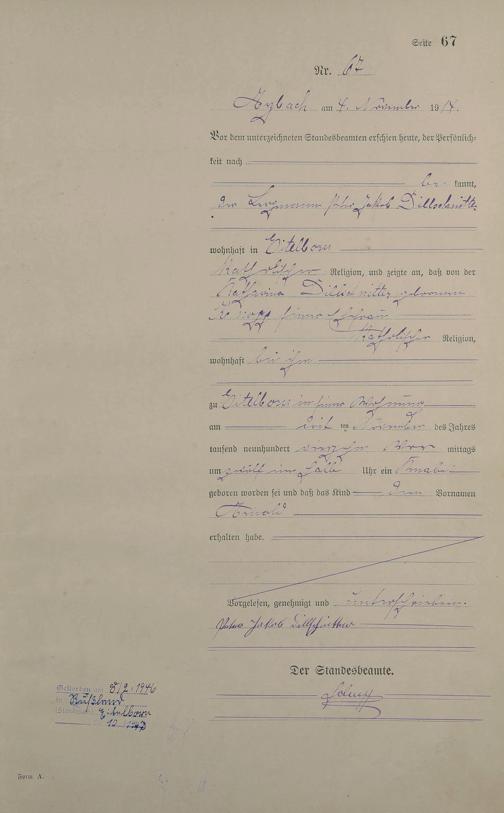 Seite 67
Nr. 67
am 4. November 1914.
Vor dem unterzeichneten Standesbeamten erschien heute, der Persönlich-
keit nach
be- kannt,
der Peter Jakob Dillschnitter
wohnhaft in Eitelborn
katholischer Religion, und zeigte an, daß von der
Katharina Dillschnitter geborenen
Knopp seiner Ehefrau
katholischer Religion,
wohnhaft bei ihm
zu Eitelborn in seiner Wohnung
am ten November des Jahres
tausend neunhundert vierzehn Vor mittags
um zwölf ein halb Uhr ein Knabe
geboren worden sei und daß das Kind den Vornamen
Arnold
erhalten habe.
Vorgelesen, genehmigt und unterschrieben.
Peter Jakob Dillschnitter
Der Standesbeamte.
Gestorben am 5/2. 1946
in Rußland
Eitelborn
Form A.